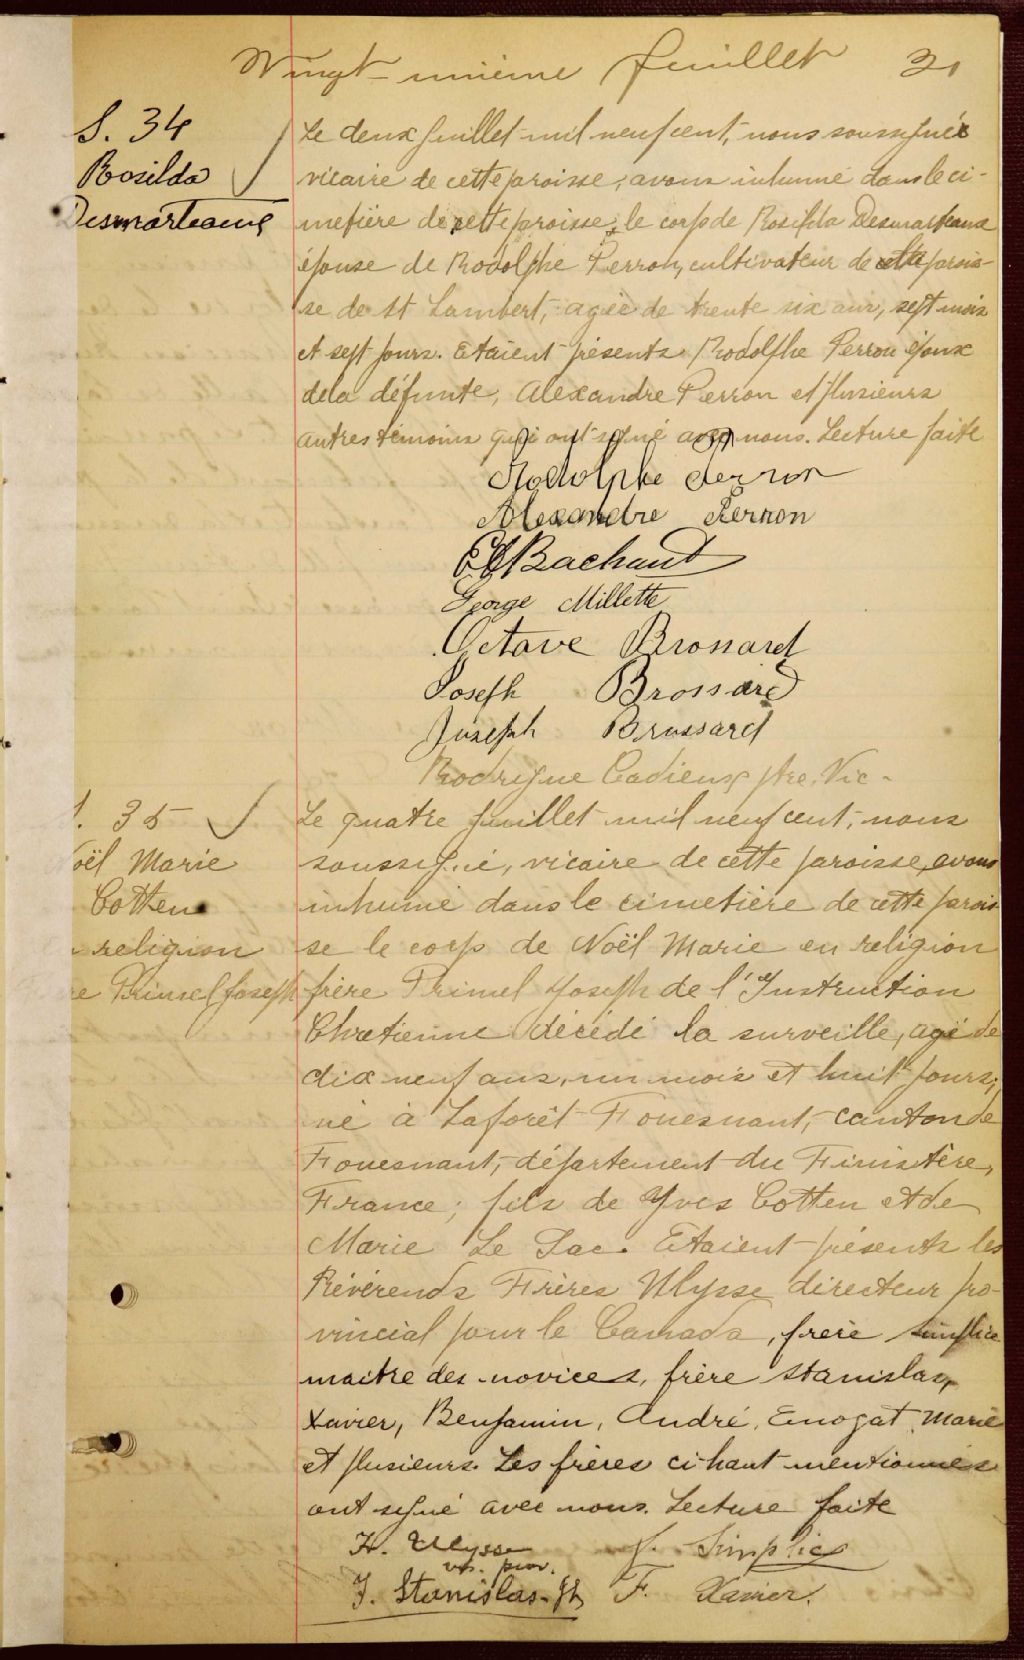 Vingt-unième feuillet 21
S. 34
Rosilda
Desmarteaux
Le deux juillet mil neuf cent, nous soussigné
vicaire de cette paroisse, avons inhumé dans le ci-
metière de cette paroisse, le corps de Rosilda Desmarteaux
épouse de Rodolphe Perron, cultivateur de cette parois-
se de St Lambert, agée de trente six ans, sept mois
et sept jours. Etaient présents Rodolphe Perron époux
de la défunte, Alexandre Perron et plusieurs
autres témoins qui ont signé avec nous. Lecture faite
Rodolphe Perron
Alexandre Perron
Bachand
George Millette
Octave Brossard
Joseph Brossard
Joseph Brossard
Rodrigue Cadieux ptre. Vic-
35
oël Marie
Cotten
religion
e Primel Joseph
Le quatre juillet mil neuf cent, nous
soussigné, vicaire de cette paroisse, avons
inhumé dans le cimetière de cette parois-
se le corps de Noël Marie en religion
frère Primel Joseph de l'Instruction
Chretienne décédé la surveille, agé de
dix neuf ans, un mois et huit jours;
né à Laforêt-Fouesnant, canton de
Fouesnant, département du Finistère,
France; fils de Yves Cotten et de
Marie Le Sac. Etaient présents les
Révérends Frères Ulysse directeur pro-
vincial pour le Canada, frère Simplice
maitre des novices, frère Stanislas,
Xavier, Benjamin, André, Enogat Marie
et plusieurs. Les frères ci-haut mentionnés
ont signé avec nous. Lecture faite
F. Ulysse f. Simplice
vis. prov.
F. Stanislas-Jh F. Xavier.